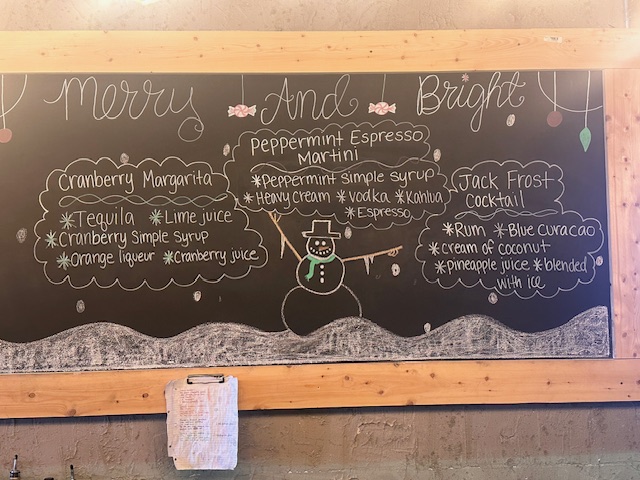 Merry And Bright
Cranberry Margarita
*Tequila *Lime juice
*Cranberry Simple Syrup
*Orange liqueur *Cranberry juice
Peppermint Espresso
Martini
*Peppermint simple syrup
*Heavy Cream *vodka *Kahlua
*Espresso
Jack Frost
Cocktail
*Rum *Blue curacao
*cream of coconut
*pineapple juice *blended
with ice